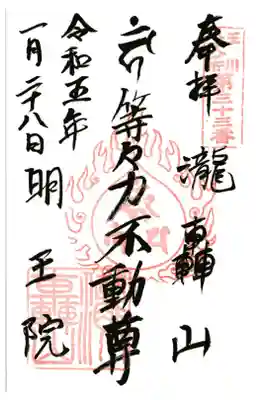 奉拝 瀧轟山
等々力不動尊
令和五年
一月二十八日 明王院
第三十三番